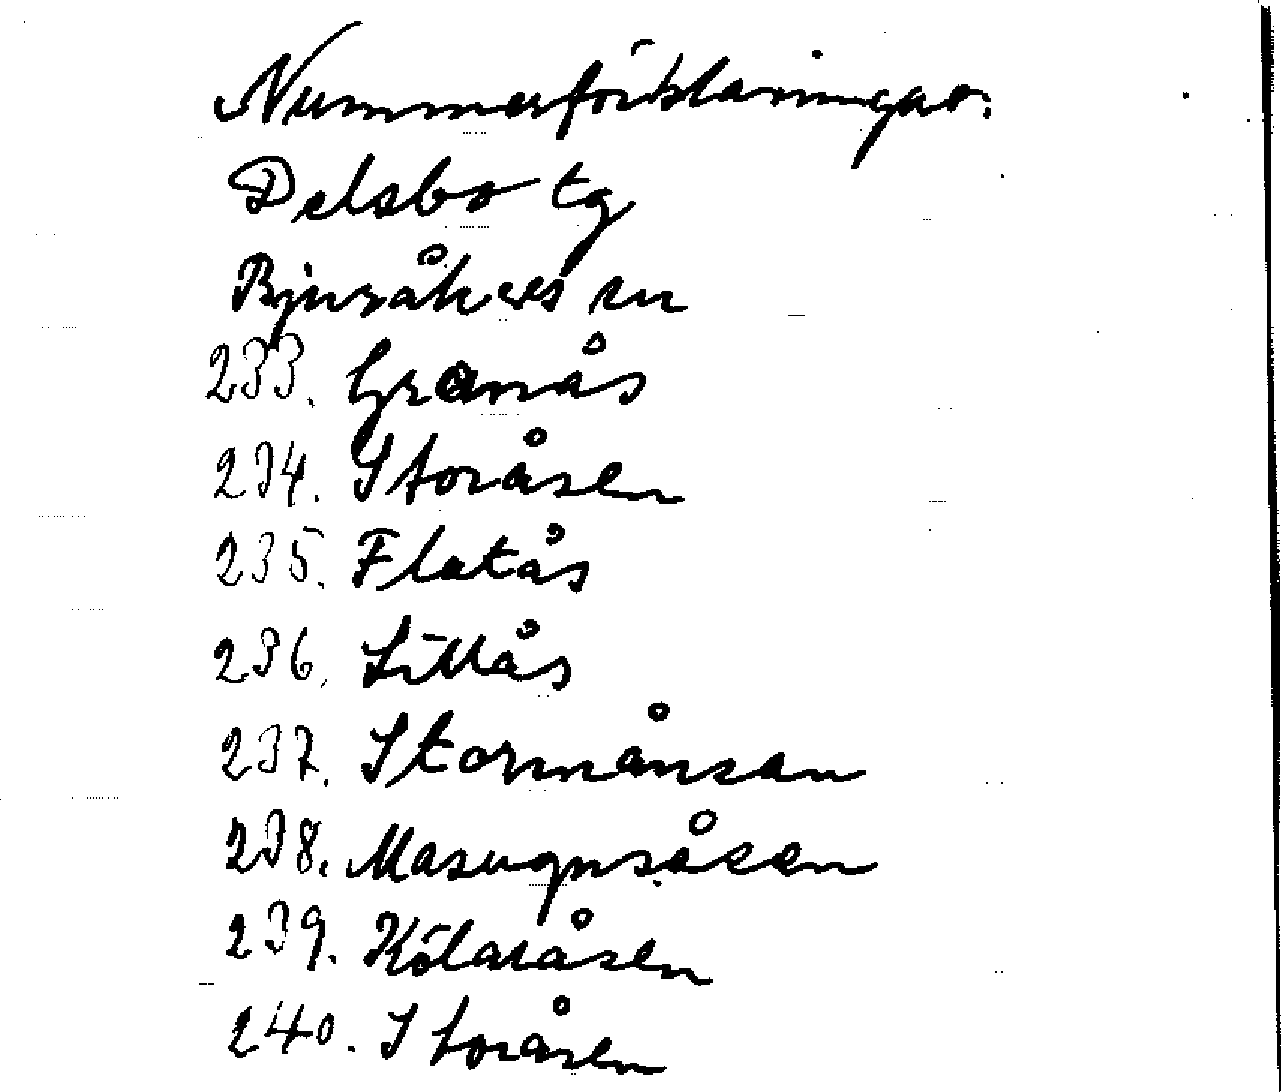 Nummerförklaringar.
Delsbo tg
Bjuråkers sn
233. Granås
234. Storåsen
235. Flatås
236. Lillås
237. Stormånsan
238. Masugnsåsen
239. Kölaråsen
240. Storåsen